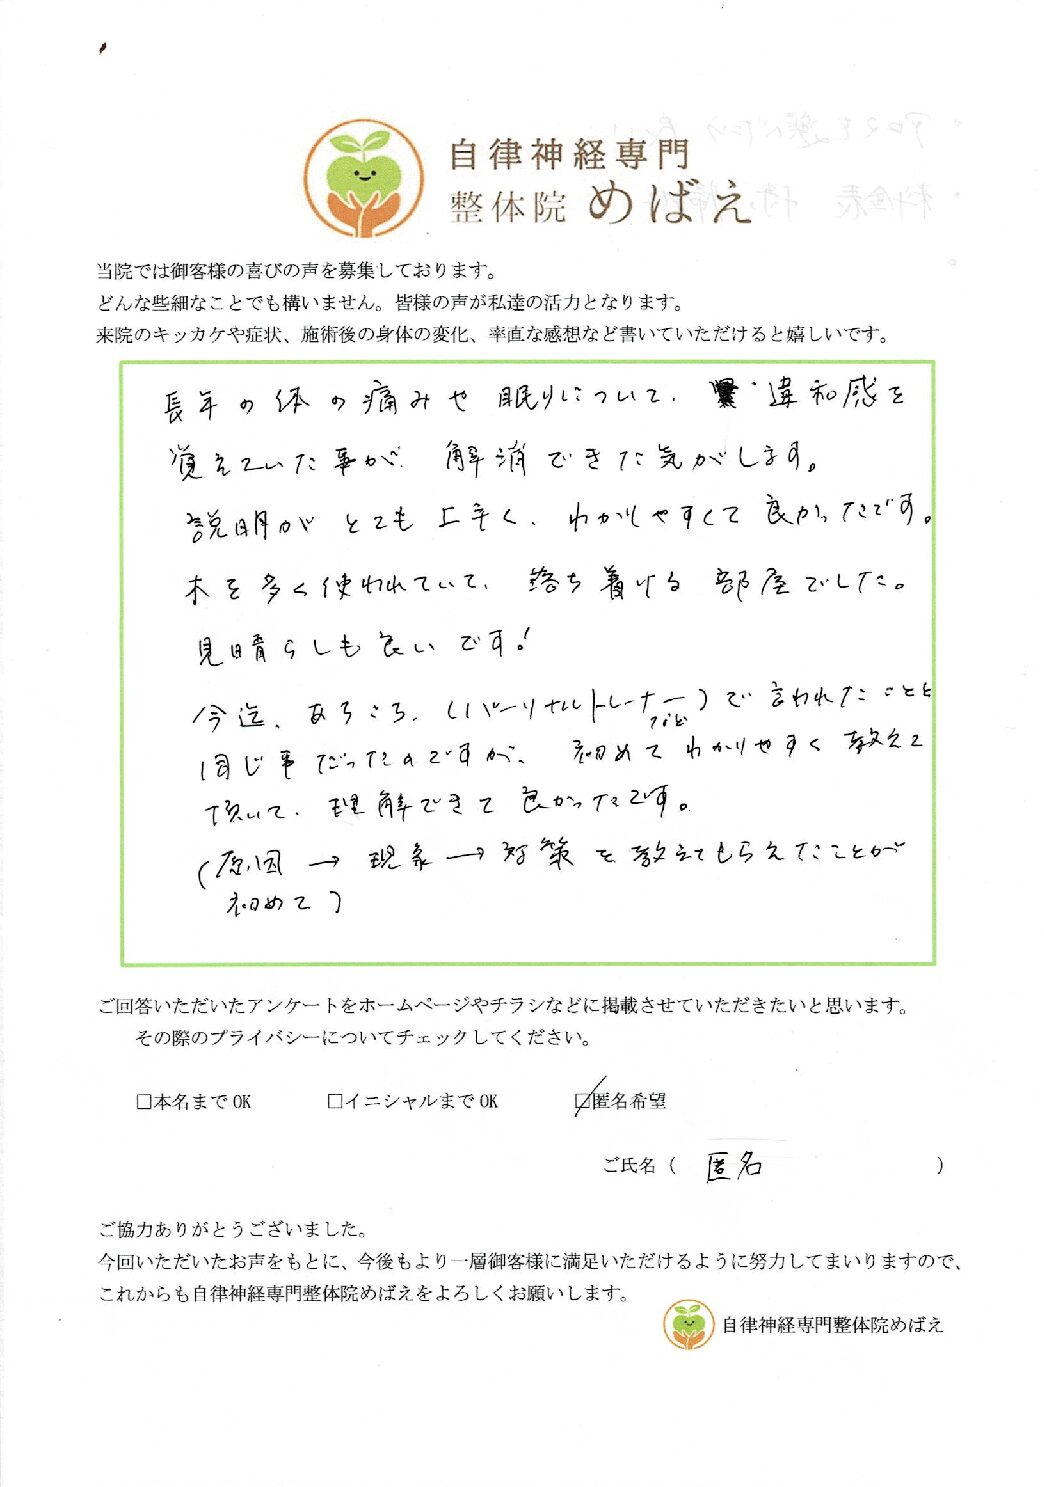 自律神経専門
整体院 めばえ
当院では御客様の喜びの声を募集しております。
どんな些細なことでも構いません。皆様の声が私達の活力となります。
来院のキッカケや症状、施術後の身体の変化、率直な感想など書いていただけると嬉しいです。
長年の体の痛みや眠りについて、違和感を
覚えていた事が、解消できた気がします。
説明がとても上手く、わかりやすくて良かったです。
木を多く使われていて、落ち着ける部屋でした。
見晴らしも良いです!
今迄、あちこち、(パーソナルトレーナーなど)で言われたことと
同じ事だったのですが、初めてわかりやすく教えて
頂いて、理解できて良かったです。
(原因→現象→対策を教えてもらえたことが
初めて)
ご回答いただいたアンケートをホームページやチラシなどに掲載させていただきたいと思います。
その際のプライバシーについてチェックしてください。
□本名までOK □イニシャルまでOK ☑匿名希望
ご氏名( 匿名 )
ご協力ありがとうございました。
今回いただいたお声をもとに、今後もより一層御客様に満足いただけるように努力してまいりますので、
これからも自律神経専門整体院めばえをよろしくお願いします。
自律神経専門整体院めばえ